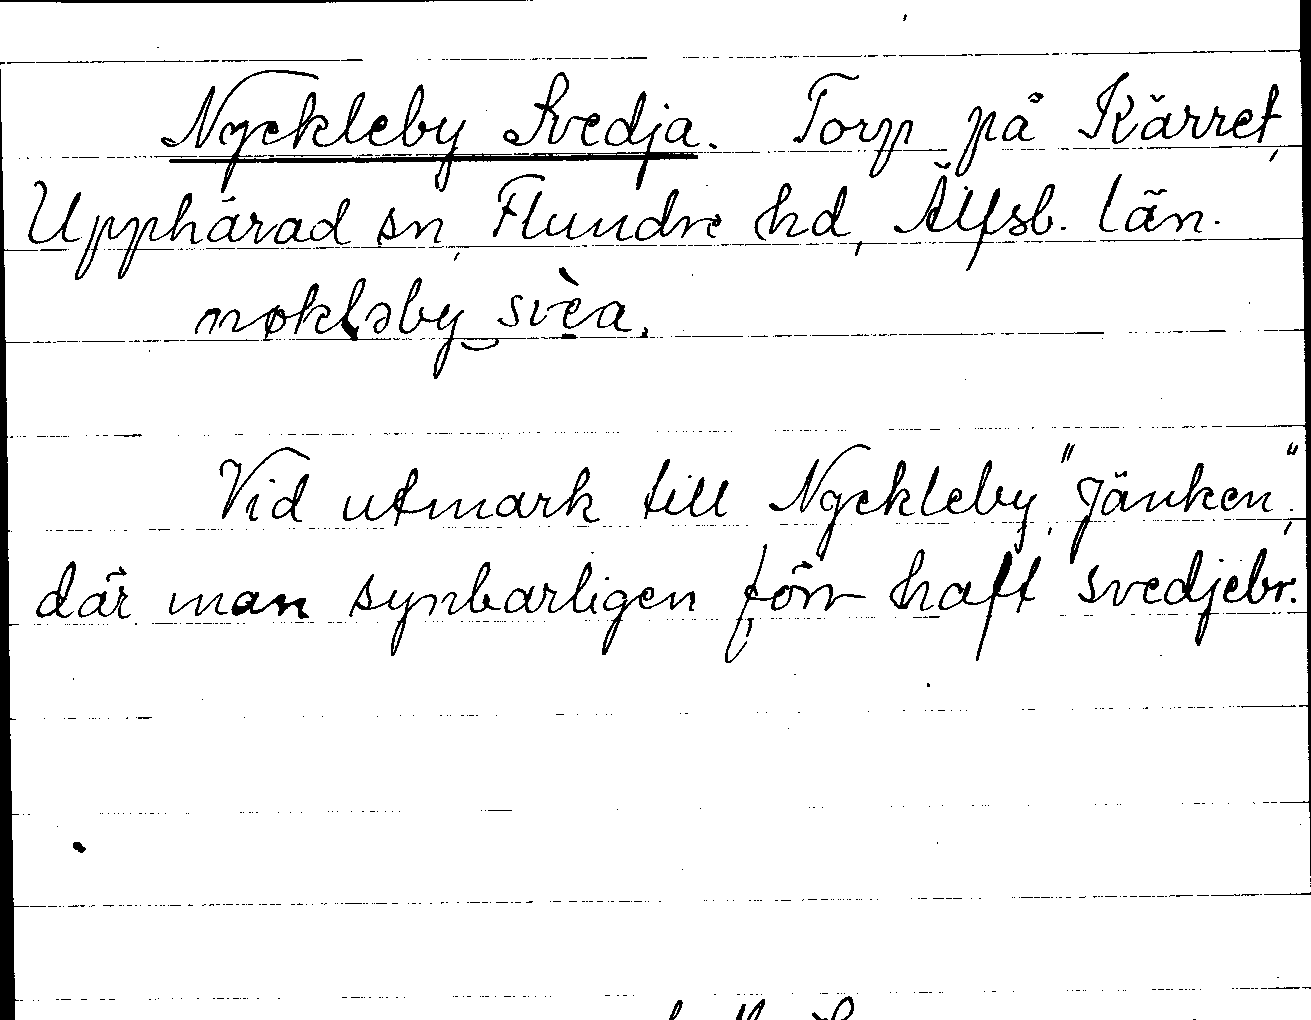 Nyckleby Svedja. Torp på Kärret,
Upphärad sn, Flundre hd, Älfsb. län.
nøkləby svèa.
Vid utmark till Nyckleby, "Jänken",
där man synbarligen förr haft svedjebr.